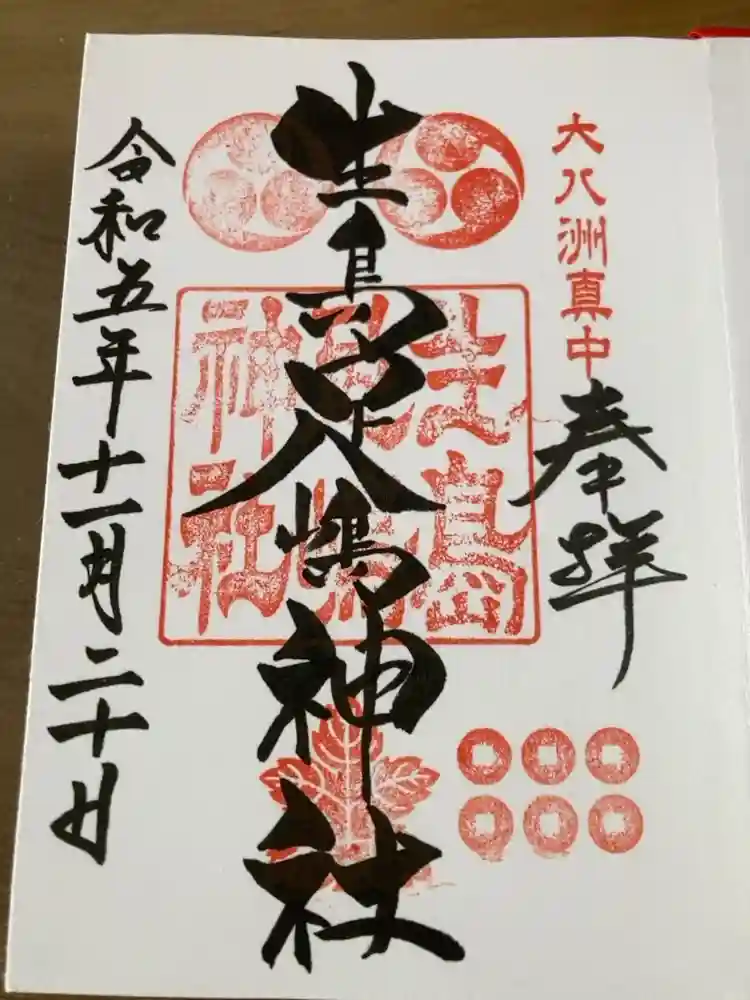 大八洲真中
奉拝
生島足嶋神社
生島
足嶋
神社
令和五年十一月二十日